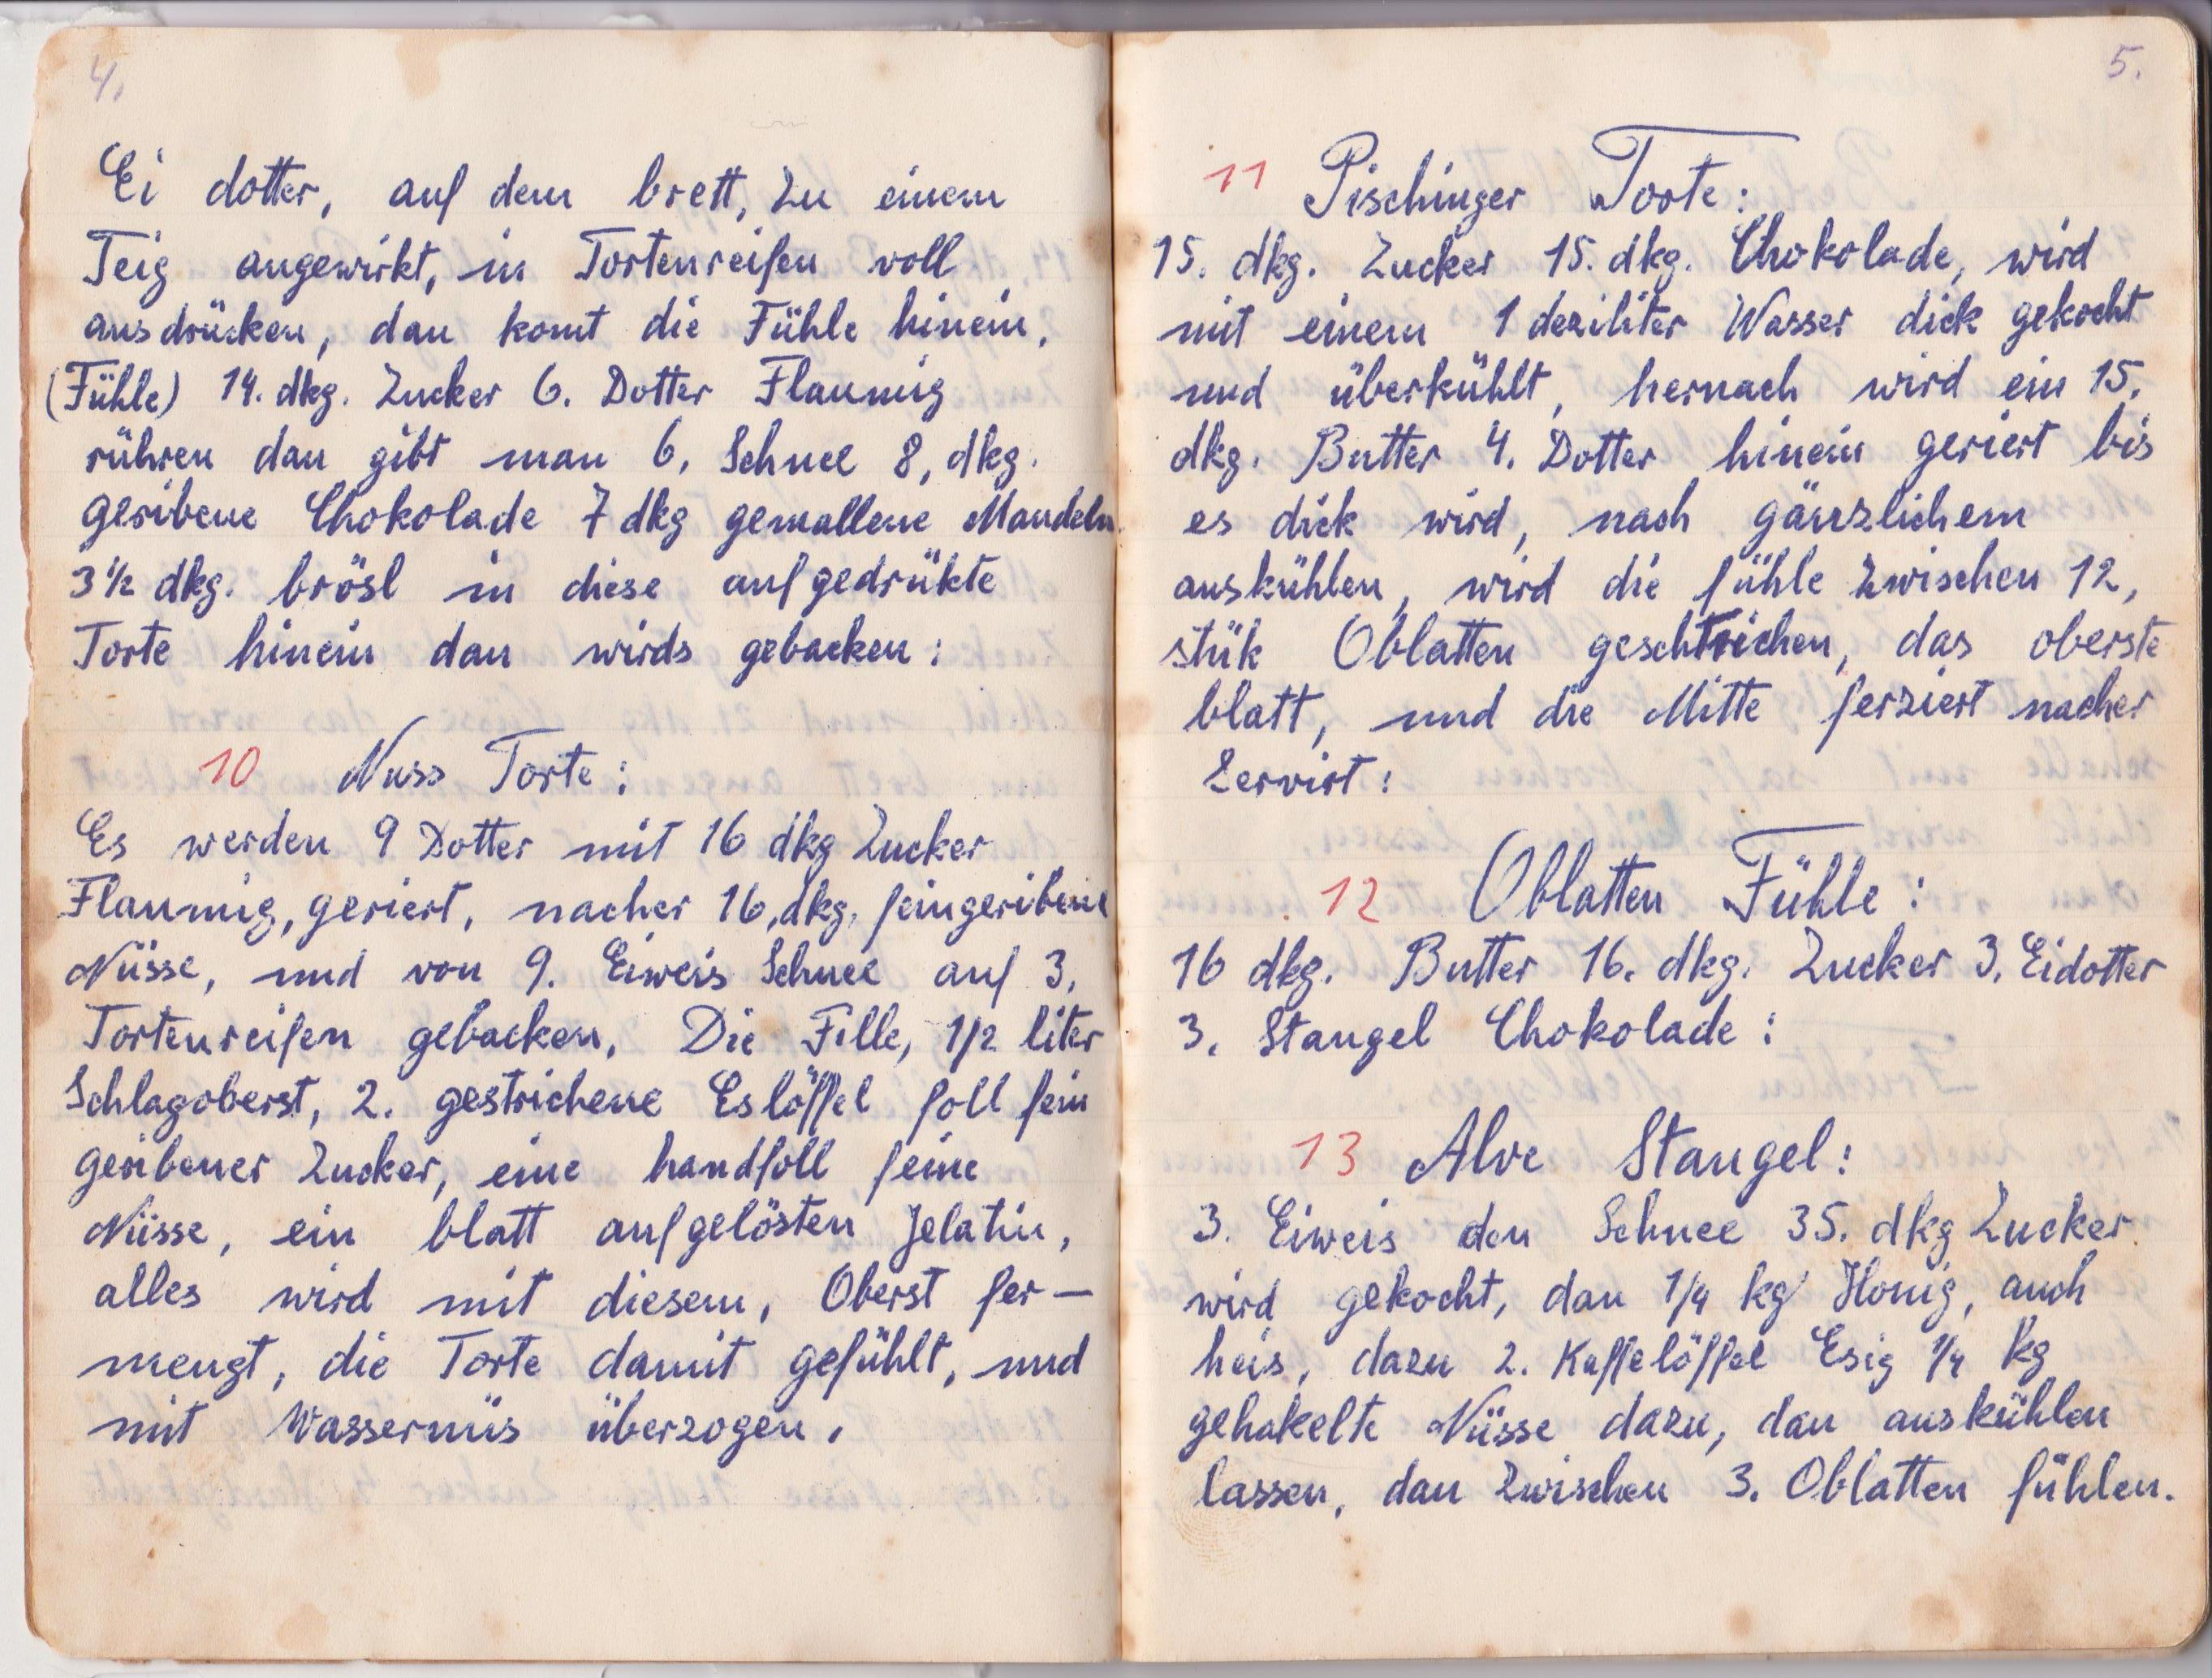 4.
Ei dotter, auf dem brett, zu einem
Teig angewirkt, in Tortenreifen voll
ausdrücken, dan komt die Fühle hinein,
(Fühle) 14. dkg. Zucker 6. Dotter Flaumig
rühren dan gibt man 6, Schnee 8, dkg.
geribene Chokolade 7 dkg gemallene Mandeln
3 1/2 dkg. brösl in diese aufgedrükte
Torte hinein dan wirds gebacken:
10 Nuss Torte:
Es werden 9 Dotter mit 16 dkg Zucker
Flaumig, geriert, nacher 16, dkg, feingeribene
Nüsse, und von 9. Eiweis Schnee auf 3,
Tortenreifen gebacken, Die Fille, 1/2 liter
Schlagoberst, 2. gestrichene Eslöffel foll fein
geribener Zucker, eine handfoll feine
Nüsse, ein blatt aufgelösten Jelatin,
alles wird mit diesem, Oberst fer-
mengt, die Torte damit gefühlt, und
mit Wassernüs überzogen,
5.
11 Pischinger Torte:
15. dkg. Zucker 15. dkg. Chokolade, wird
mit einem 1 deziliter Wasser dick gekocht
und überkühlt, hernach wird ein 15,
dkg. Butter 4. Dotter hinein geriert bis
es dick wird, nach gänzlichem
auskühlen, wird die fühle zwischen 12,
stük Oblatten geschtrichen, das oberste
blatt, und die Mitte ferziert nacher
Zervirt:
12 Oblatten Fühle:
16 dkg. Butter 16. dkg. Zucker 3. Eidotter
3. Stangel Chokolade:
13 Alve Stangel:
3. Eiweis den Schnee 35. dkg Zucker
wird gekocht, dan 1/4 kg Honig, auch
heis, dazu 2. Kaffelöffel Esig 1/4 kg
gehakelte Nüsse dazu, dan auskühlen
lassen, dan zwischen 3. Oblatten fühlen.